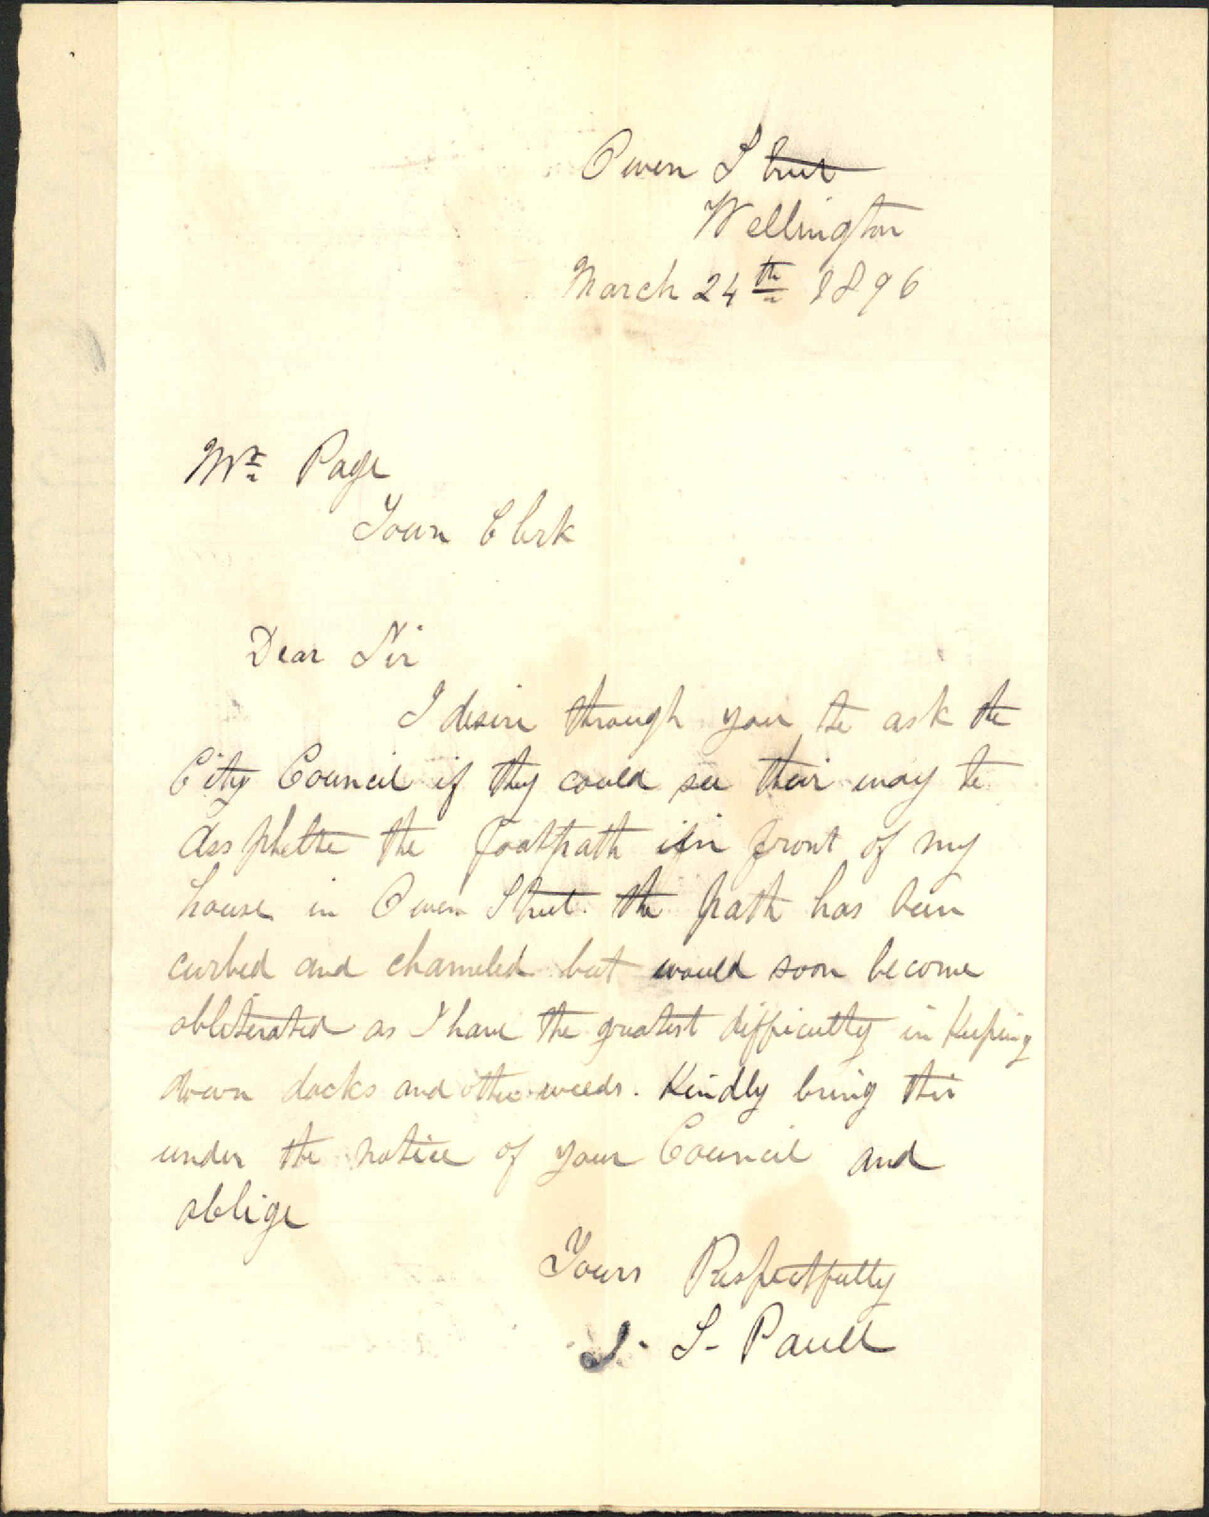 Owen Street
Wellington
March 24th 1896
Mr Page
Town Clerk
Dear Sir
I desire through you to ask the
City Council if they could see their way to
Assphalte the footpath in front of my
house in Owen Street. the path has been
curbed and channeled but would soon become
obliterated as I have the greatest difficulty in Keeping
down docks and other weeds. Kindly bring this
under the notice of your Council and
oblige
Yours Respectfully
J. S. Paull